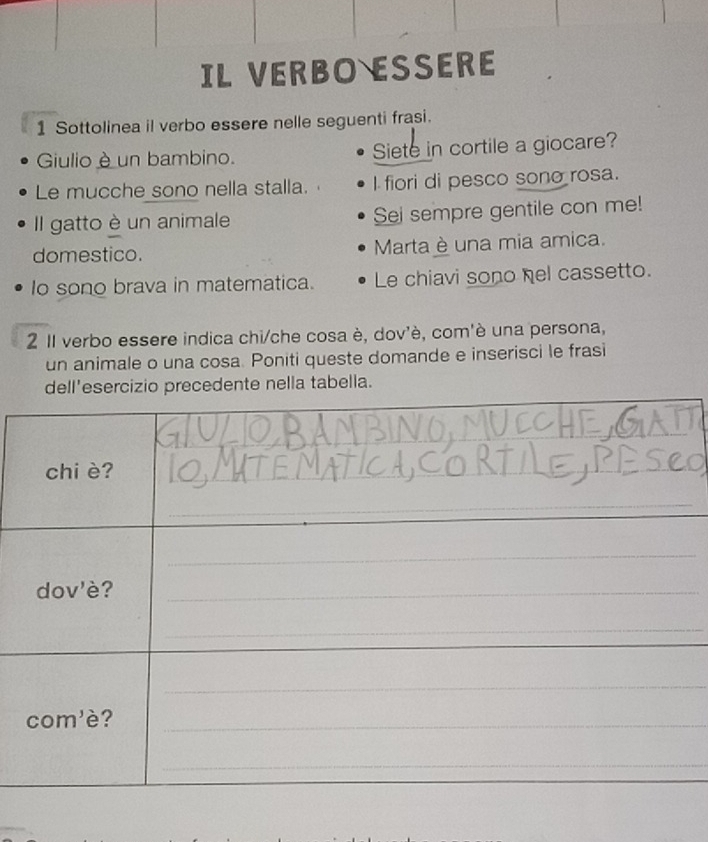 IL VERBO ESSERE
1 Sottolinea il verbo essere nelle seguenti frasi.
• Giulio è un bambino.
• Le mucche sono nella stalla.
• Il gatto è un animale
domestico.
• Io sono brava in matematica.
• Siete in cortile a giocare?
• I fiori di pesco sono rosa.
• Sei sempre gentile con me!
• Marta è una mia amica.
• Le chiavi sono nel cassetto.
2 Il verbo essere indica chi/che cosa è, dov'è, com'è una persona,
un animale o una cosa. Poniti queste domande e inserisci le frasi
dell'esercizio precedente nella tabella.
chi è?
GIULIO, BAMBINO, MUCCHE, GATT
IO, MATEMATICA, CORTILE, PESCO
dov'è?
com'è?